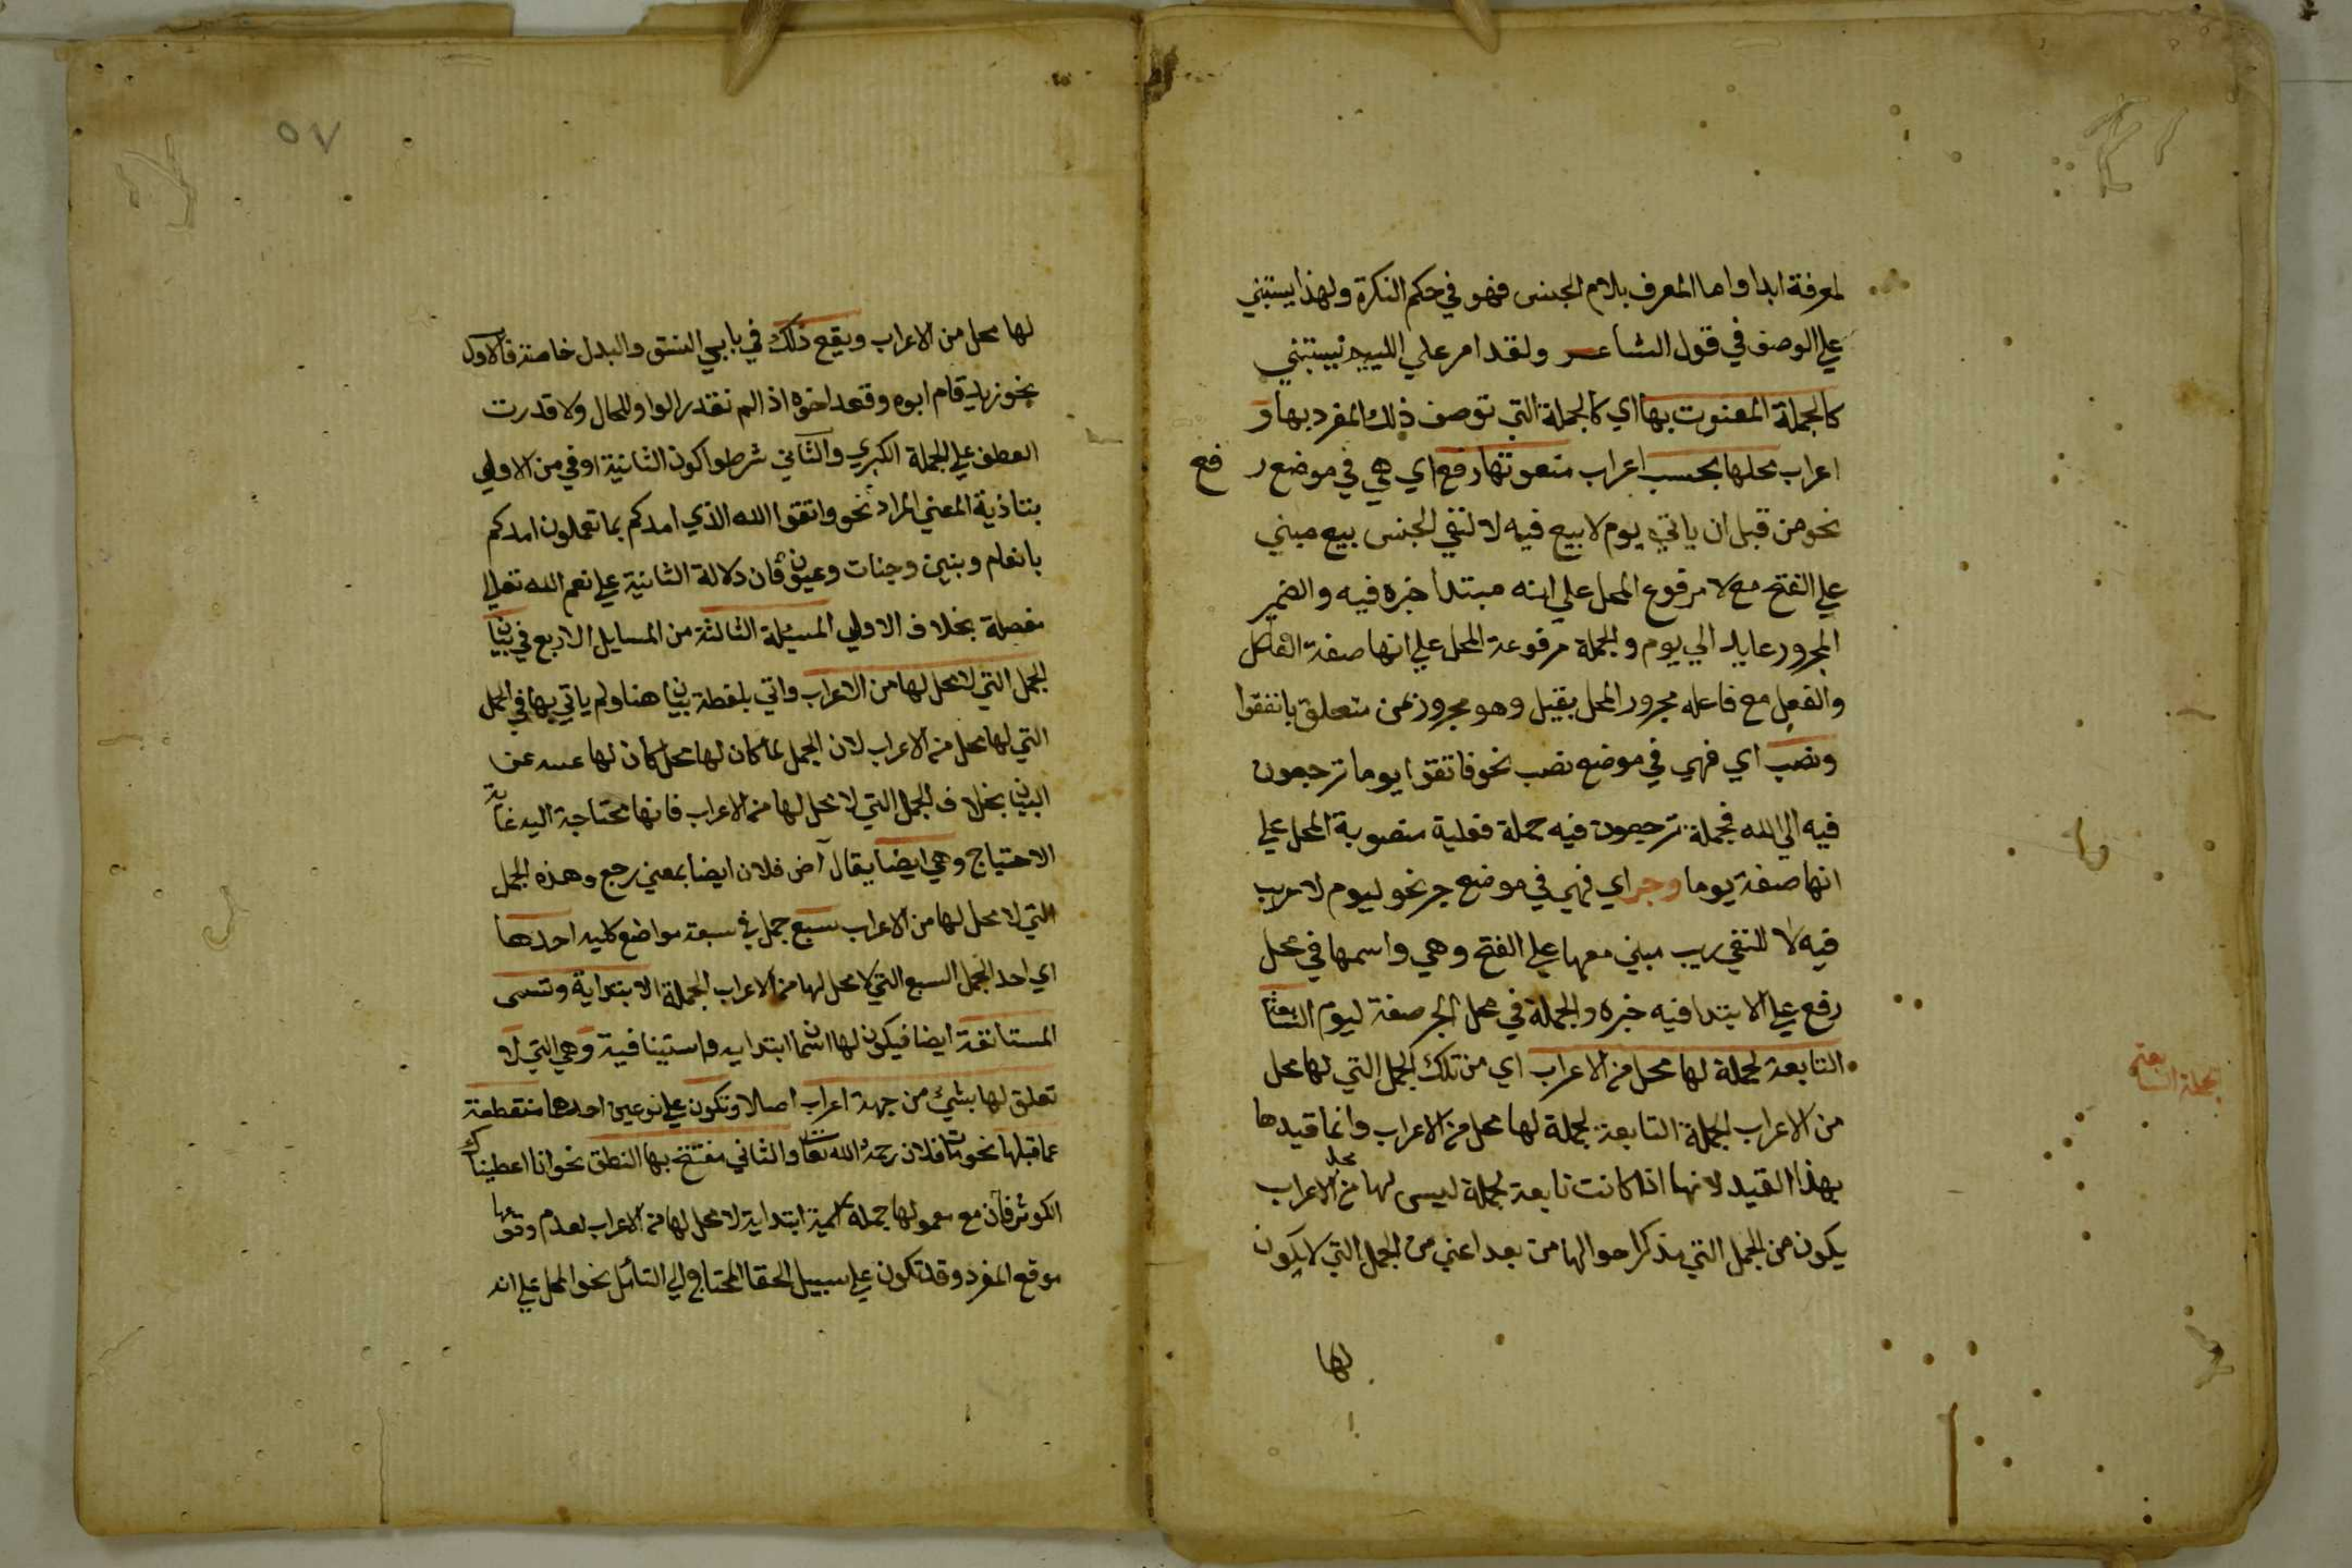 لمعرفة ابدا واما المعرف بلام الجنس فهو في حكم النكرة ولهذا يستبني
علي الوصف في قول الشاعر ولقد امر علي اللييم يسبني
كالجملة المنعوت بها اي كالجملة التي توصف ذلك المفرد بها و
اعراب محلها بحسب اعراب منعوتها رفع اي هي في موضع ر فع
نحو من قبل ان ياتي يوم لا بيع فيه لا لنفي الجنس بيع مبني
علي الفتح مع لا مرفوع المحل علي انه مبتدا خبره فيه والضمير
المجرور عايد الي يوم والجملة مرفوعة المحل علي انها صفة الفاعل
والفعل مع فاعله مجرور المحل بقبل وهو مجرور بمن متعلق بانفقوا
ونصب اي فهي في موضع نصب نحو فاتقوا يوما ترجعون
فيه الي الله فجملة ترجعون فيه جملة فعلية منصوبة المحل علي
انها صفة يوما وجر اي فهي في موضع جر نحو ليوم لا ريب
فيه لا للنفي ريب مبني معها علي الفتح وهي واسمها في محل
رفع علي الابتدا فيه خبره والجملة في محل الجر صفة ليوم السابعة
التابعة لجملة لها محل من الاعراب اي من تلك الجمل التي لها محل
الجملة السابعة
من الاعراب الجملة التابعة لجملة لها محل من الاعراب وانما قيدها
بهذا القيد لانها اذا كانت تابعة لجملة ليس لها محل من الاعراب
يكون من الجمل التي يذكر احوالها من بعد اعني من الجمل التي لا يكون
لها
٥٧
لها محل من الاعراب ويقع ذلك في بابي النسق والبدل خاصة فالاول
نحو زيد قام ابوه وقعد اخوه اذ الم نقدر الواو للحال ولا قدرت
العطف علي الجملة الكبري والثاني شرطوا كون الثانية اوفي من الاولي
بتاذية المعني المراد نحو واتقوا الله الذي امدكم بما تعملون امدكم
بانعام وبنين وجنات وعيون فان دلالة الثانية علي نعم الله تعالي
مفصلة بخلاف الاولي المسيلة الثالثة من المسايل الاربع في بيان
الجمل التي لا محل لها من الاعراب واتي بلفظة بيان هنا ولم ياتي بها في الجمل
التي لها محل من الاعراب لان الجمل لما كان لها محل كان لها عن
البيان بخلاف الجمل التي لا محل لها من الاعراب فانها محتاجة اليه غاية
الاحتياج وهي ايضا يقال آض فلان ايضا بمعني رجع وهذه الجمل
التي لا محل لها من الاعراب سبع جمل في سبعة مواضع كليه احدها
اي احد الجمل السبع التي لا محل لها من الاعراب الجملة الابتداية وتسمى
المستانفة ايضا فيكون لها اسمان ابتدايه واستينافية وهي التي لا
تعلق لها بشيء من جهة اعراب اصالا وتكون علي نوعين احدها منقطعة
عما قبلها نحو مات فلان رحمه الله تعالي والثاني مفتتح بها النطق نحو انا اعطيناك
الكوثر فان مع معمولها جملة اسمية ابتداية لا محل لها من الاعراب لعدم وقوعها
موقع المفرد وقد تكون علي سبيل الحقا المحتاج الي التامل نحو المحل علي انه